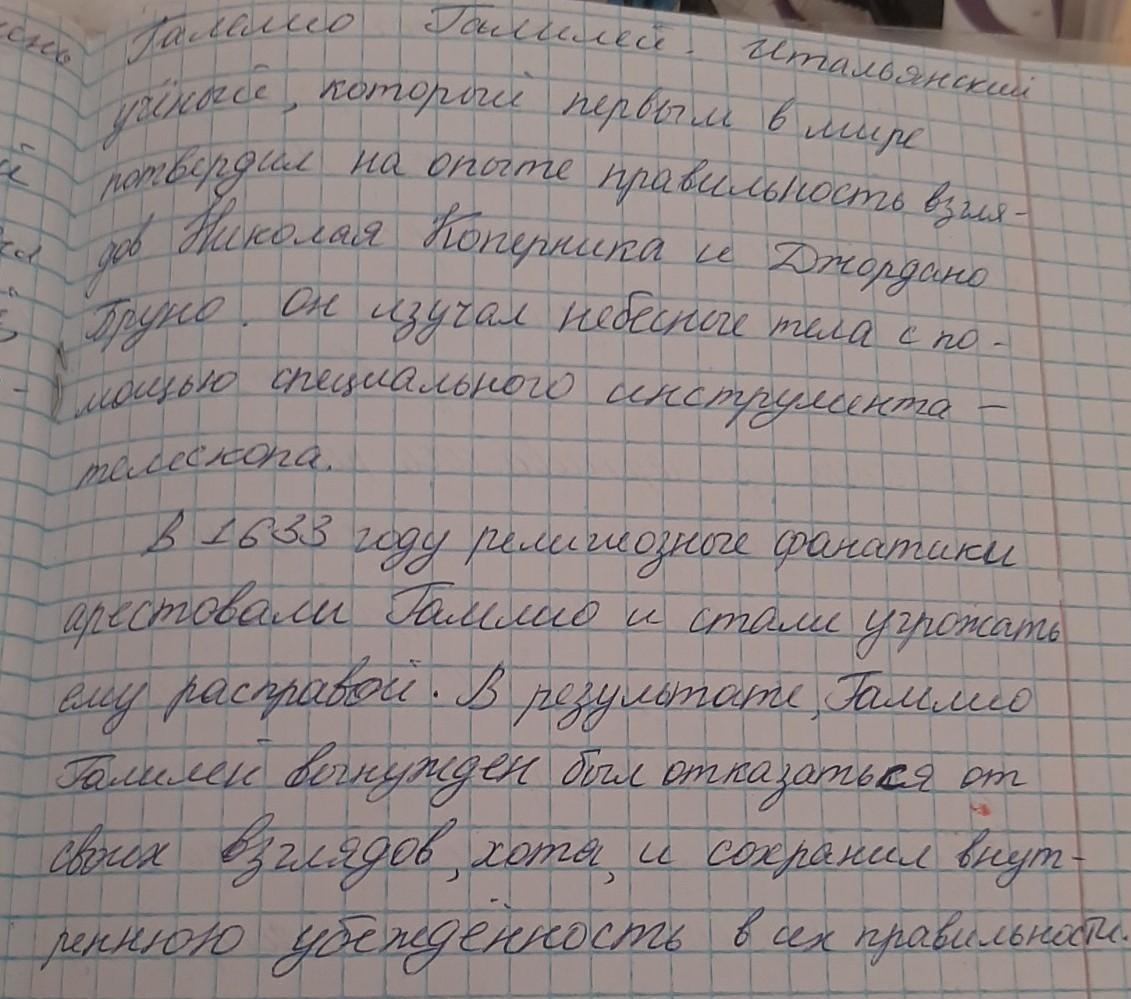 Галилео Галилей - итальянский
учёный, который первым в мире
потвердил на опыте правильность взгля-
дов Николая Коперника и Джордано
Бруно. Он изучал небесные тела с по-
мощью специального инструмента -
телескопа.
В 1633 году религиозные фанатики
арестовали Галилео и стали угрожать
ему расправой. В результате, Галилео
Галилей вынужден был отказаться от
своих взглядов, хотя, и сохранил внут-
реннюю убеждённость в их правильности.